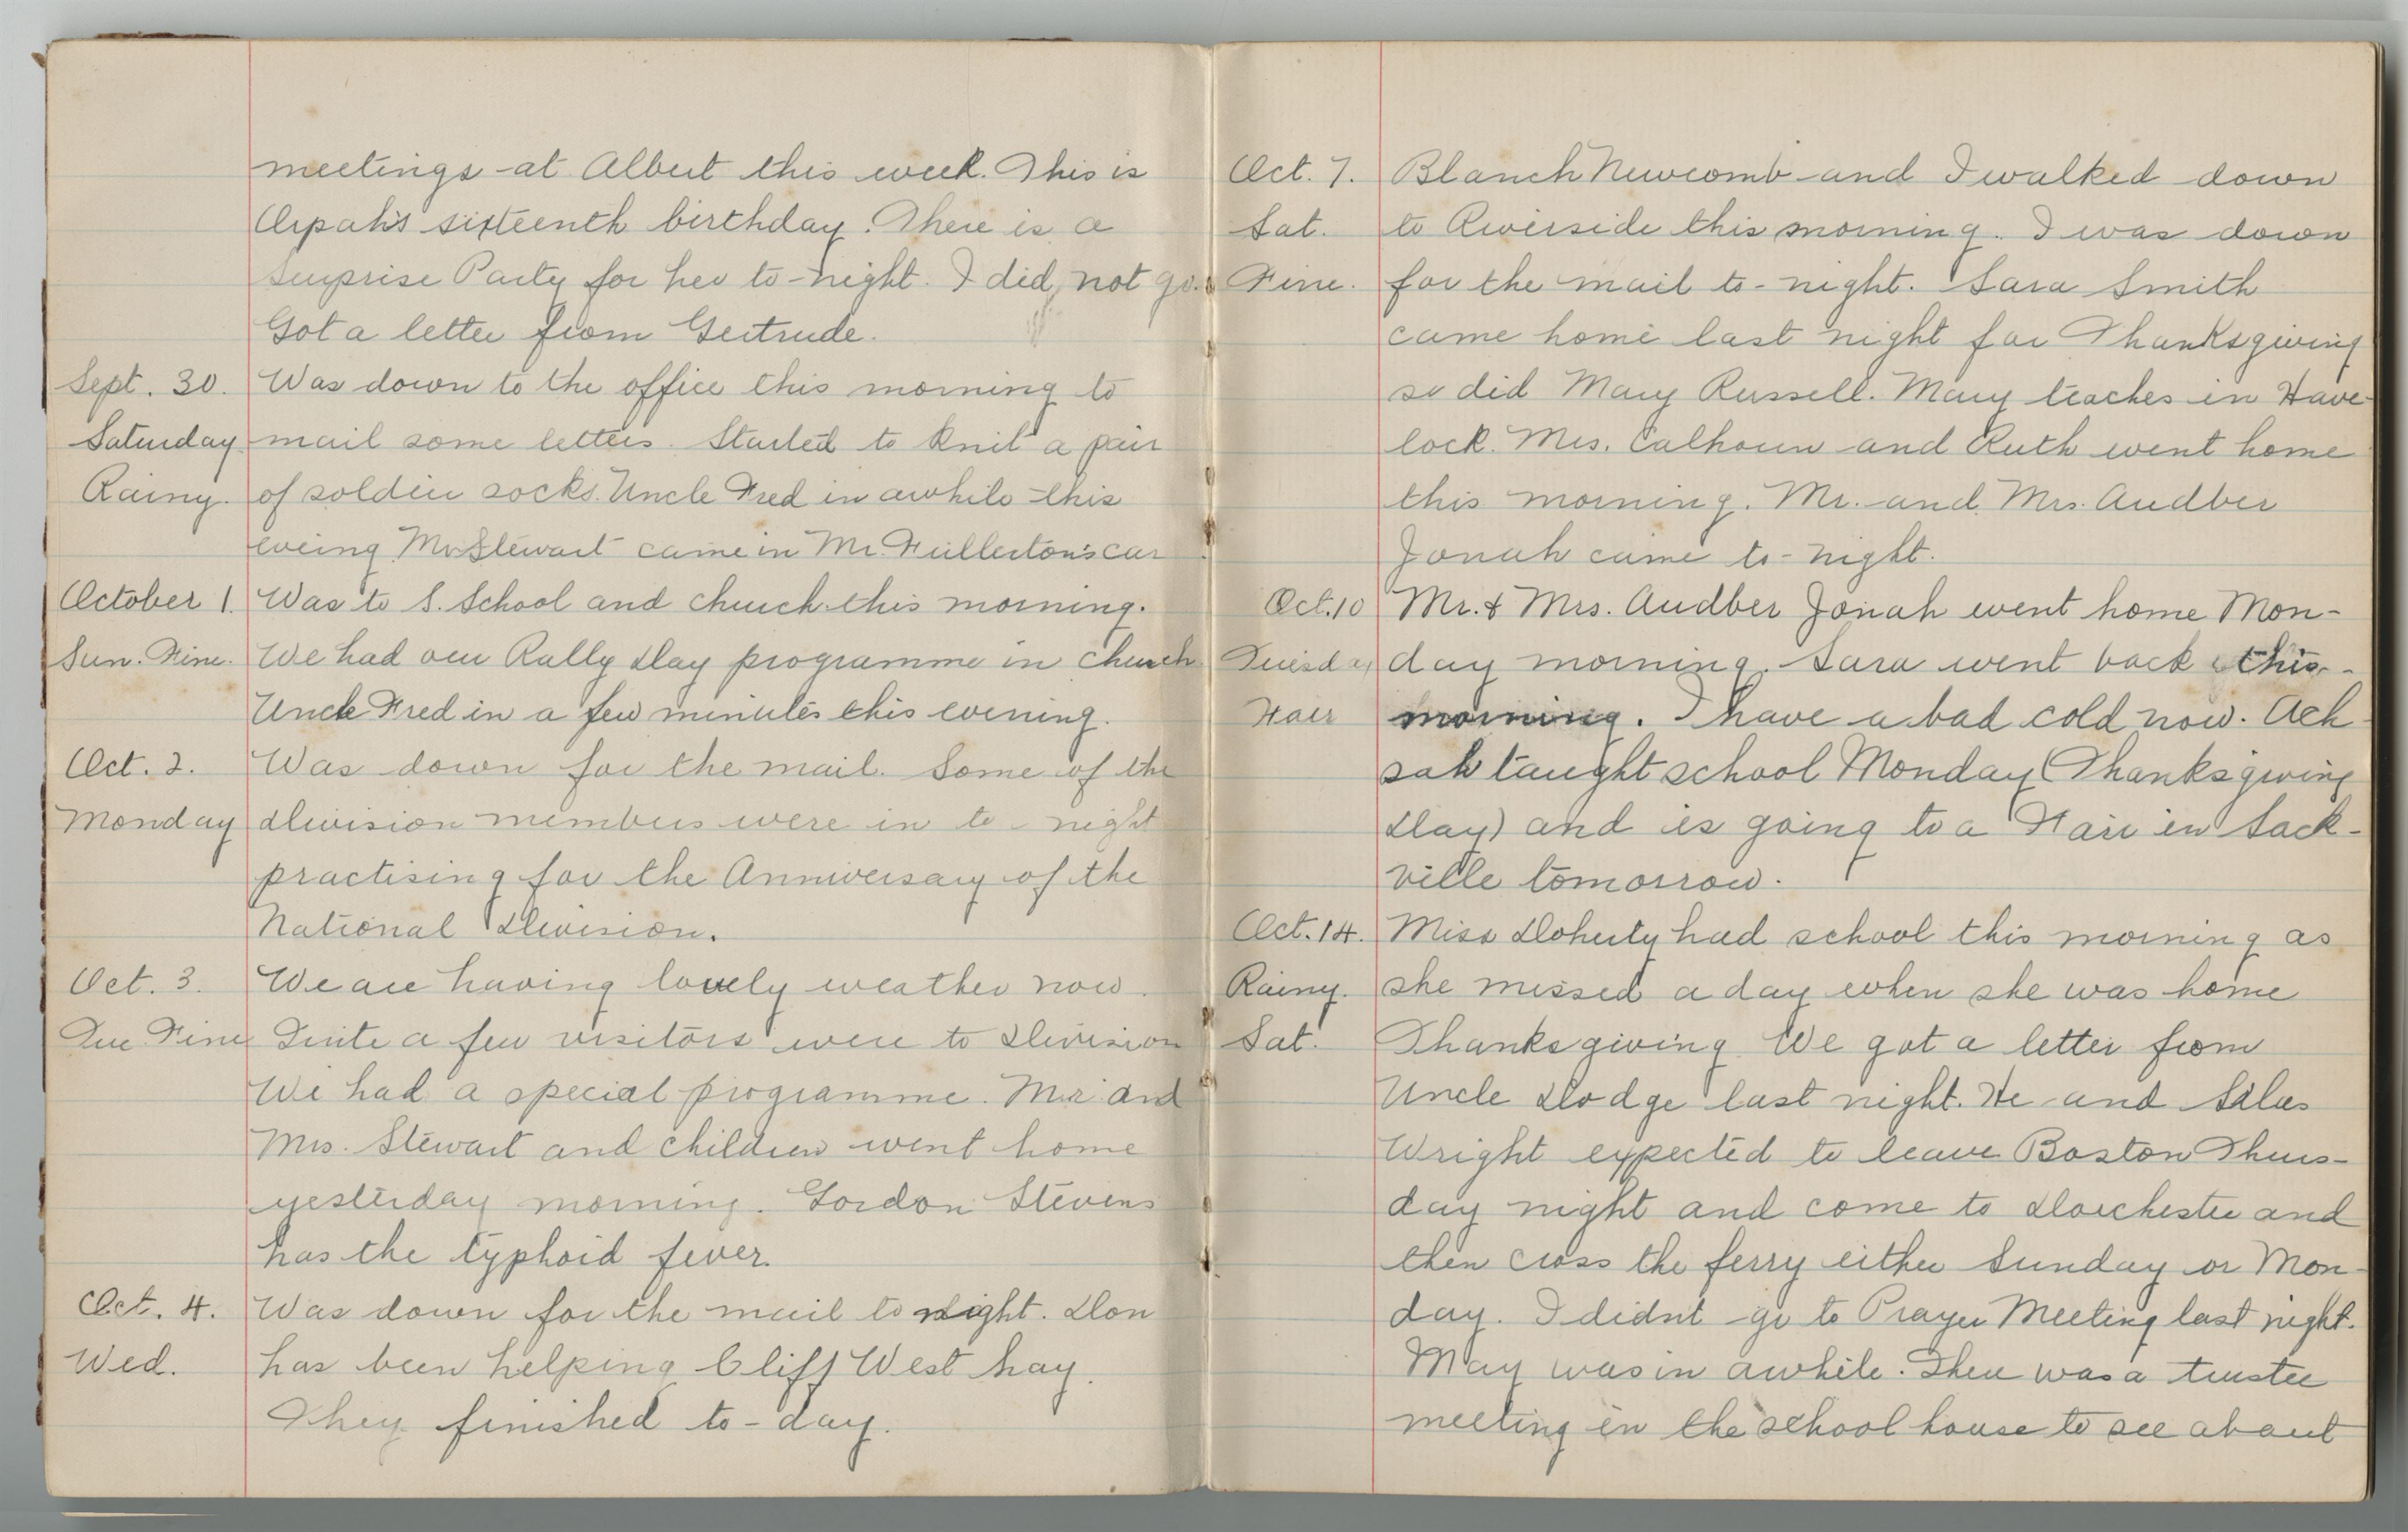 meetings at Albert this week. This is
Orpah's sixteenth birthday. There is a
surprise Party for her to-night. I did not go.
Got a letter from Gertrude.
Sept. 30. Was down to the office this morning to
Saturday mail some letters. Started to knit a pair
Rainy. of soldier socks. Uncle Fred in awhile this
eveing. Mr Stewart came in Mr. Fullerton's car
October 1. Was to S. School and church this morning.
Sun. Fine. We had our Rally Day programme in church
Uncle Fred in a few minutes this evening.
Oct. 2. Was down for the mail. Some of the
Monday division members were in to-night
practising for the Anniversary of the
National Division.
Oct. 3. We are having lovely weather now.
Tue Fine Quite a few visitors were to Division
We had a special programme. Mr. and
Mrs. Stewart and children went home
yesterday morning. Gordon Stevens
has the typhoid fever.
Oct. 4. Was down for the mail to night. Don
Wed. has been helping Cliff West hay.
They finished to-day.
Oct. 7. Blanch Newcomb and I walked down
Sat. to Riverside this morning. I was down
Fine. for the mail to-night. Sara Smith
came home last night for Thanksgiving
so did Mary Russell. Mary teaches in Have-
lock. Mrs. Calhoun and Ruth went home
this morning. Mr. and Mrs. Audber
Jonah came to-night.
Oct. 10 Mr. & Mrs. Audber Jonah went home Mon-
Tuesday day morning. Sara went back this
Fair morning. I have a bad cold now. Ach-
sah taught school Monday (Thanksgiving
Day) and is going to a Fair in Sack-
ville tomorrow.
Oct. 14. Miss Doherty had school this morning as
Rainy. she missed a day when she was home
Sat. Thanksgiving. We got a letter from
Uncle Dodge last night. He and Silas
Wright expected to leave Boston Thurs-
day night and come to Dorchester and
then cross the ferry either Sunday or Mon-
day. I didn't go to Prayer Meeting last night.
May was in awhile. There was a trustee
meeting in the school house to see about